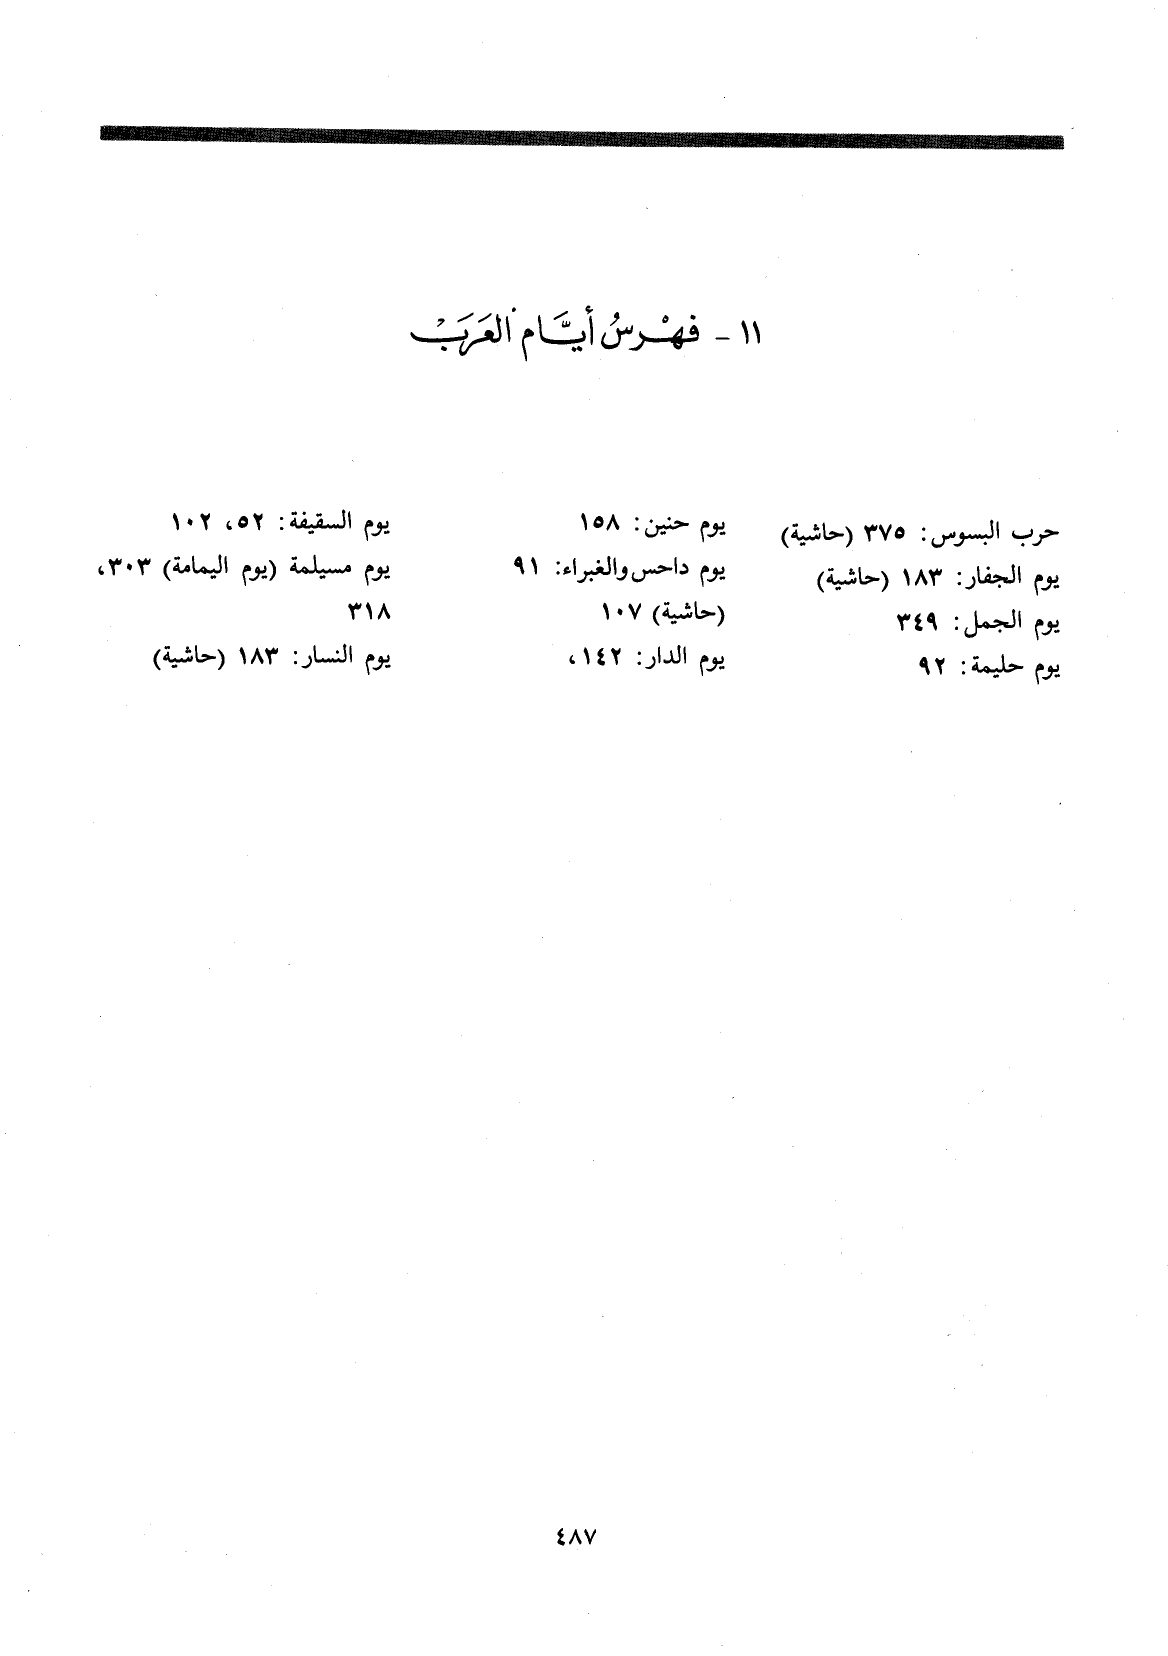 ١١ - فهْرسُ أيَّام العَرَبْ
حرب البسوس: ٣٧٥ (حاشية)
يوم الجفار: ١٨٣ (حاشية)
يوم الجمل: ٣٤٩
يوم حليمة: ٩٢
يوم حنين: ١٥٨
يوم داحس والغبراء: ٩١
(حاشية) ١٠٧
يوم الدار: ١٤٢،
يوم السقيفة: ٥٢، ١٠٢
يوم مسيلمة (يوم اليمامة) ٣٠٣،
٣١٨
يوم النسار: ١٨٣ (حاشية)
٤٨٧